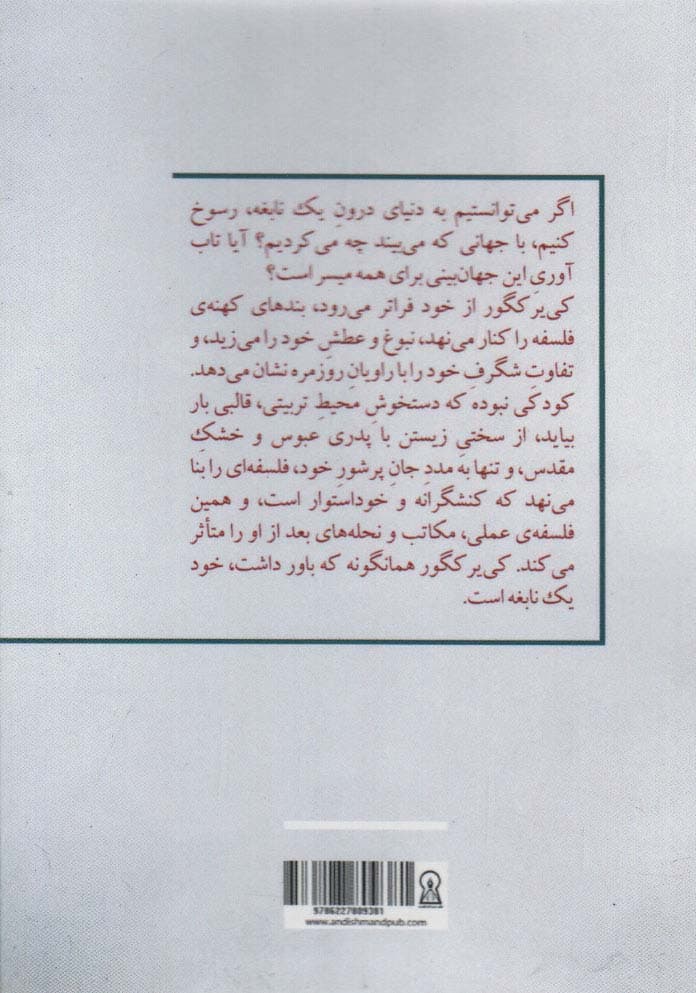 اگر می‌توانستیم به دنیای درونِ یک نابغه، رسوخ
کنیم، با جهانی که می‌بیند چه می‌کردیم؟ آیا تاب
آوریِ این جهان‌بینی برای همه میسر است؟
کی‌یرکگور از خود فراتر می‌رود، بندهای کهنه‌ی
فلسفه را کنار می‌نهد، نبوغ و عطشِ خود را می‌زید، و
تفاوتِ شگرفِ خود را با راویانِ روزمره نشان می‌دهد.
کودکی نبوده که دستخوشِ محیطِ تربیتی، قالبی بار
بیاید، از سختیِ زیستن با پدری عبوس و خشکِ
مقدس، و تنها به مددِ جانِ پرشورِ خود، فلسفه‌ای را بنا
می‌نهد که کنشگرانه و خوداستوار است، و همین
فلسفه‌ی عملی، مکاتب و نحله‌های بعد از او را متأثر
می‌کند. کی‌یرکگور همانگونه که باور داشت، خود
یک نابغه است.
9786227809381
www.andishmandpub.com